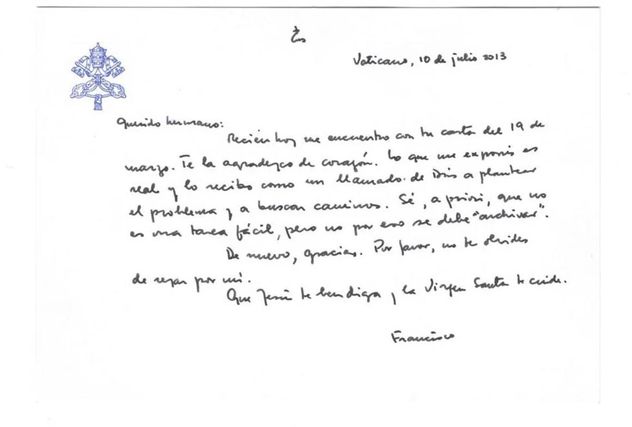 Vaticano, 10 de julio 2013
Querido hermano:
Recién hoy me encuentro con tu carta del 19 de
marzo. Te la agradezco de corazón. Lo que me exponés es
real y lo recibo como un llamado de Dios a plantear
el problema y a buscar caminos. Sé, a priori, que no
es una tarea fácil, pero no por eso se debe "archivar".
De nuevo, gracias. Por favor, no te olvides
de rezar por mí.
Que Jesús te bendiga y la Virgen Santa te cuide.
Francisco